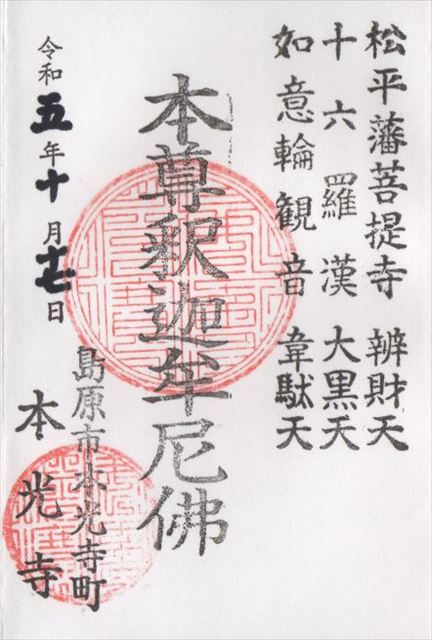 松平藩菩提寺 辨財天
十六羅漢 大黒天
如意輪観音 韋駄天
本尊釈迦牟尼佛
島原市本光寺町
本光寺
令和五年十月十七日